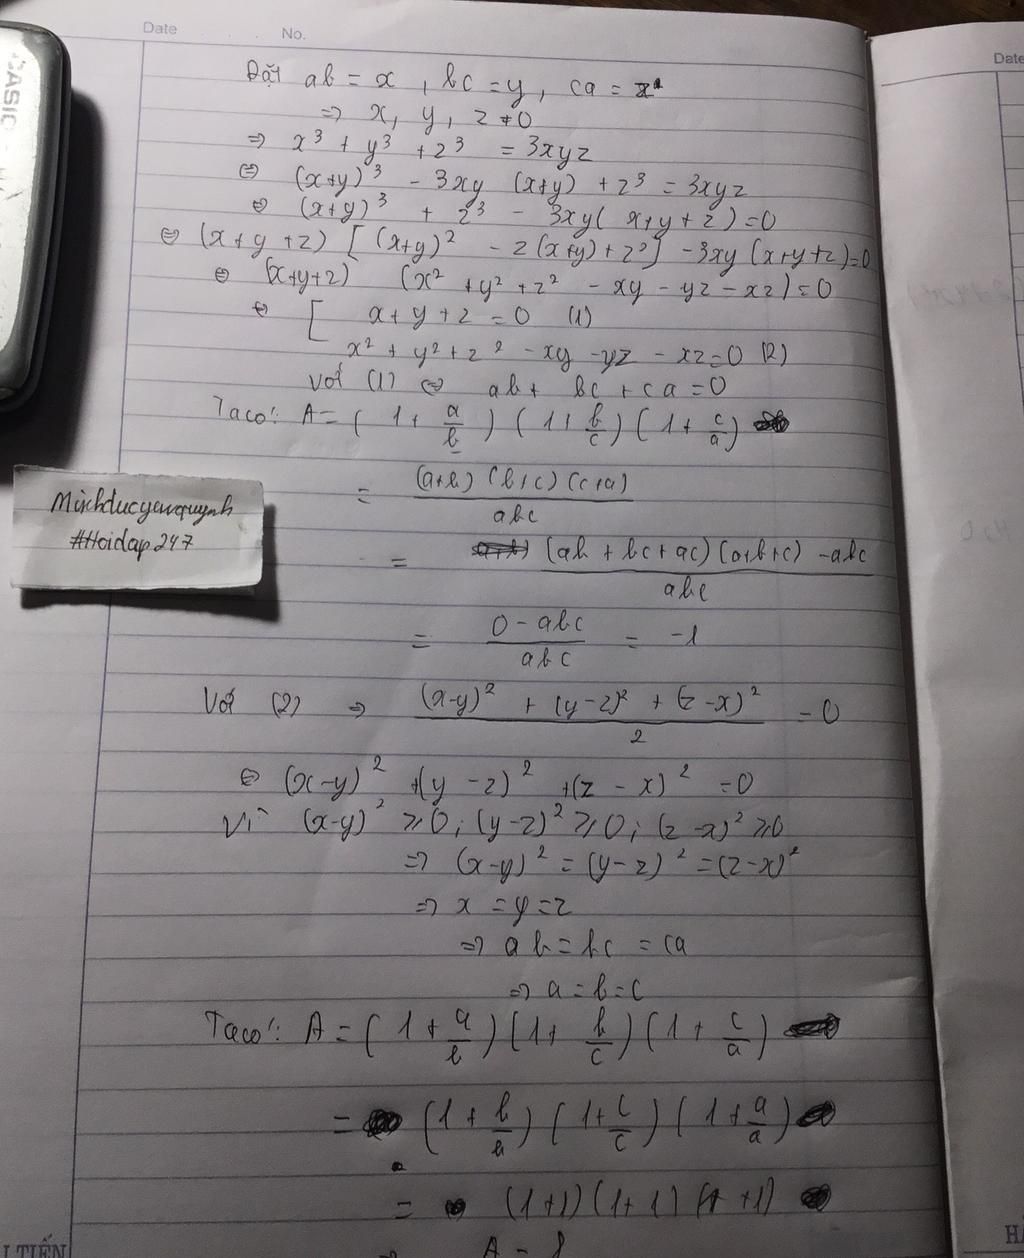 Date No.
Date
CASIO
Đặt ab = x , bc = y, ca = z
=> x, y, z ≠ 0
=> x³ + y³ + z³ = 3xyz
<=> (x+y)³ - 3xy (x+y) + z³ = 3xyz
<=> (x+y)³ + z³ - 3xy( x+y+z) = 0
<=> (x+y+z) [(x+y)² - z(x+y) + z²] - 3xy (x+y+z)=0
<=> (x+y+z) (x² + y² + z² - xy - yz - xz) = 0
<=> [ x + y + z = 0 (1)
x² + y² + z² - xy - yz - xz = 0 (2)
Với (1) <=> ab + bc + ca = 0
Ta có: A = ( 1 + a/b ) ( 1 + b/c ) ( 1 + c/a )
= (a+b) (b+c) (c+a) / abc
= (ab + bc + ac) (a+b+c) - abc / abc
= 0 - abc / abc = -1
Với (2) => (x-y)² + (y-z)² + (z-x)² / 2 = 0
<=> (x-y)² + (y-z)² + (z-x)² = 0
Vì (x-y)² ≥ 0; (y-z)² ≥ 0; (z-x)² ≥ 0
=> (x-y)² = (y-z)² = (z-x)²
=> x = y = z
=> ab = bc = ca
=> a = b = c
Ta có: A = ( 1 + a/b ) ( 1 + b/c ) ( 1 + c/a )
= ( 1 + b/b ) ( 1 + c/c ) ( 1 + a/a )
= (1+1) (1+1) (1+1)
=> A = 8
Minhducyeuquynh
#Hoidap247
TIẾN